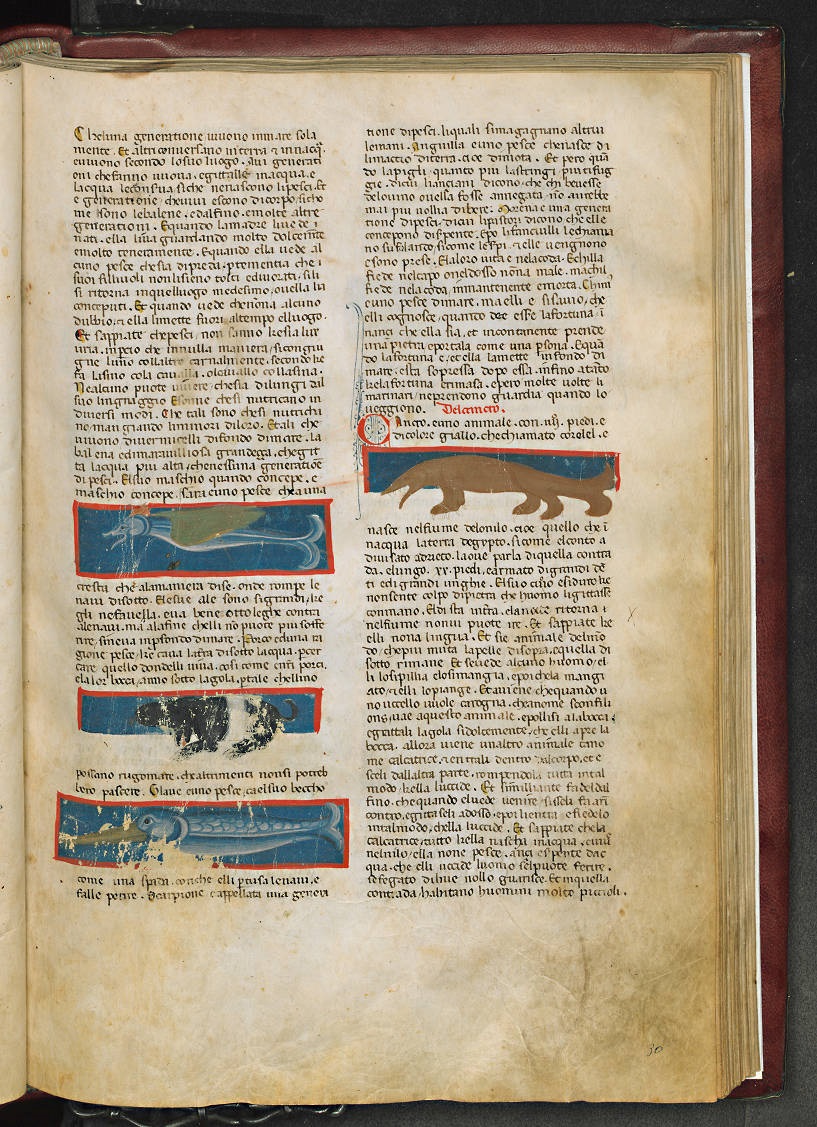 Che luna generatione uiuono inmare sola
mente. Et altri conuersano interra & innacq̄.
& uiuono secondo lo suo luogo. Altri generati
oni che fanno uuoua, egittalle inacqua, e
lacqua leconserua siche nenascono li pesci. Et
e generatione che uiui escono dicorpo, sicho
me sono lebalene, edalfino, emolte altre
generationi. Equando lamadre liuede
nati, ella liua guardando molto dolcemēte
emolto teneramente. Equando ella uede al
cuno pesce chesia dipreda, p̄ temenza che i
suoi filliuoli nonlisieno tolti
si ritorna inquelluogo medesimo, ouella lia
conceputi. Et quando uede che nōna alcuno
dubbio, & ella limette fuori altempo elluogo.
Et sappiate chepesci, non sanno kesia lux
uria, inpero che innulla maniera sicongiu
gne luno collaltro carnalmente, secondo ke
fa lasino cola caualla, olcauallo collasina.
Nealcuno puote uiuere, chesia dilungi dal
suo lingnaggio. Esonne chesi nutricano in
diuersi modi. Che tali sono chesi nutrichi
no mangiando liminori diloro. Et ali che
uiuono diuermicelli difondo dimare. La
balena edimarauilliosa grandezza, chegit
ta lacqua piu alta, chenessuna generatiōe
di pesci. Elsuo maschio quando concepe. e
maschio concepe. Sarra euno pesce cheauna
cresta che alamaniera dise. onde rompe le
naui disotto. Elesue ale sono si grandi, ke
gli nefauella. eua bene otto leghe contra
alenaui. ma alafine chelli nō puote piu soffe
rire, sineua inp̄fondo dimare. Porco eduna ra
gione pesce, ke caua laterra disotto lacqua. p̄ cer
care quello dondelli uiua. cosi come linr̄i porci.
elalor bocca, anno sotto lagola, p̄ tale chellino
possano rugomare, chaltrimenti nonsi potreb
bero pascere. Glaue euno pesce, caelsuo beccho
come una spada. conche elli p̄tusa lenaui, e
falle perire. Scarpione e appellata una genera
tione dipesci. liquali simagagnano altrui
lemani. Anguilla euno pesce chenasce di
limaccio diterra. cioe dimota. Et pero quā
do lapigli, quanto piu lastringi, piu tifug
gie. dicui lianciani dicono, che chi beuesse
deluuino ouella fosse annegata, nō aurebbe
mai piu uollia dibere. Morena e una genera
tione dipesci. dicui lipiscatori dicono che elle
concepono diserpente. Epo lifanciulli lechiama
no sufilando, sicome serpi. & elle uengnono
& sono prese. Elaloro uita e nelacoda. Echilla
fiede nelcapo oneldosso nōna male. ma chi
fiede nela coda, immantenente emorta. Chini
euno pesce dimare. ma elli e sisauio, che
elli cognosce, quando dee esse lafortuna. i
nanci che ella sia, et incontanente prende
una pietra eportala come una p̄sona. Equā
do lafortuna e, et ella lamette infondo di
mare. esta sopressa dopo essa. infino atāto
kelafortuna erimasa. epero molte uolte li
marinari neprendono guardia quando lo
ueggiono. Delcincro.
Cincro. euno animale. con .iiij. piedi. e
dicolore giallo. che chiamato corolel. e
nasce nelfiume delonilo. cioe quello che i
nacqua laterra degypto. sicome elconto a
diuisato adrieto. laoue parla diquella contra
da. elungo .xx. piedi. earmato digrandi dē
ti edigrandi unghie. Elsuo coio esiduro ke
nonsente colpo dipietra che huomo ligittasse
conmano. Eldi sta interra. elanocte ritorna a
nelfiume nonui puote ire. Et sappiate ke
elli nona lingua. Et sie animale delmō
do, chepiu muta lapelle disopra. equella di
sotto rimane. Et seuede alcuno huomo, el
li losipillia elosimangia. epoi chela mangi
ato, & elli lopiange. Et auiene chequando u
no uccello uuole carogna. che anome sconfili
ons. uae aquesto animale. epollisi ala bocca.
egrattali lagola sidolcemente, che elli apre la
bocca. allora uiene unaltro animale cano
me calcatrice. & entrali dentro alcorpo. et e
scieli dallaltra parte. rompendola tutta intal
modo. kella luccide. Et similliante fa deldal
fino. chequando eluede uenire, siseli fa in
contro. egitaseli adosso. epoi lientra. e fiedelo
intalmodo. chella luccide. Et sappiate chela
calcatrice, tutto kella nascha inacqua. euiua
nelnilo. ella none pesce. anci e serpente dac
qua. che elli uccide luomo selpuote ferire.
sefegato dibue nollo guarisce. Et inquella
contrada habitano huomini molto piccioli.
30